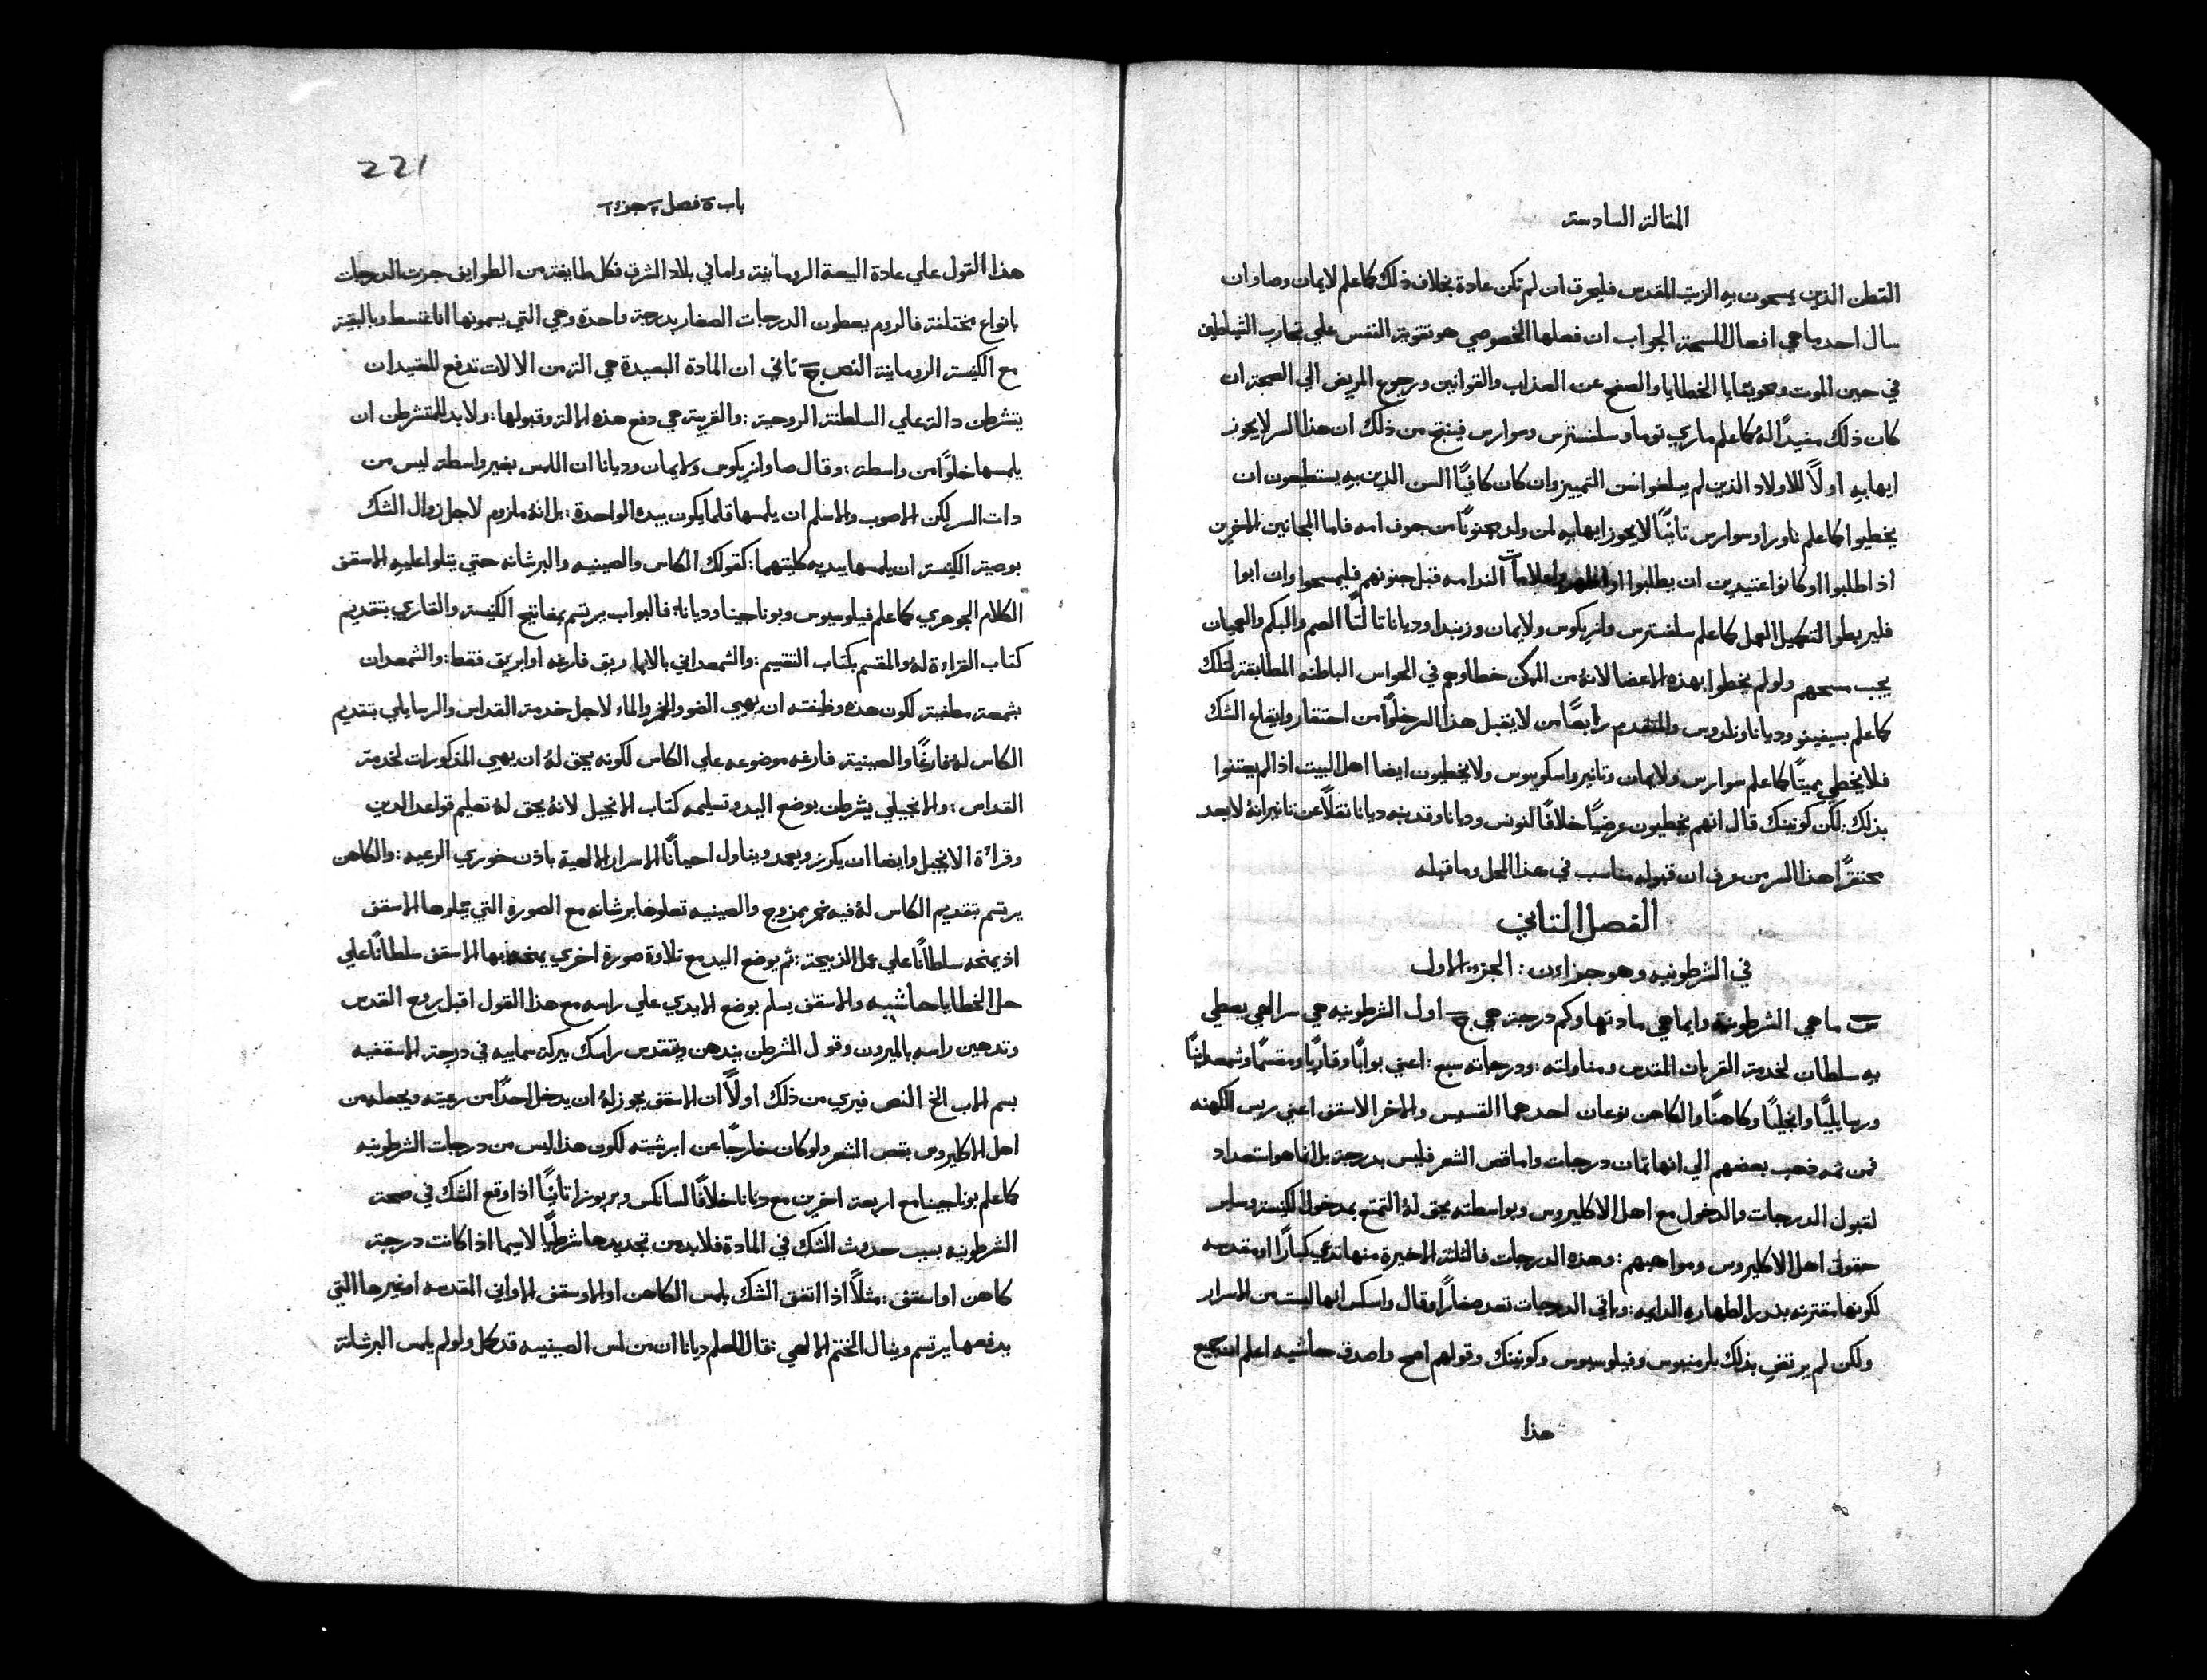 المقالة السادسة
القطن الذين يمسحون به الزيت المقدس فليحرق ان لم تكن عادة بخلاف ذلك كما علم لايمان وصا وان
سال احد ما هي افعال المسحة الجواب ان فعلها الخصوصي هو تقوية النفس علي تجارب الشياطين
في حين الموت ومحو بقايا الخطايا والصفح عن العذاب والقوانين ورجوع المريض الي الصحة ان
كان ذلك مفيدًا له كما علم ماري توما وسلفسترس وسوارس فينتج من ذلك ان هذا السر لا يجوز
ايهابه اولًا للاولاد الذين لم يبلغوا سن التمييز وان كان كافيًا السن الذين به يستطيعون ان
يخطيوا كما علم ناورا وسوارس تانيًا لا يجوز ايهابه لمن ولد مجنونًا من جوف امه فاما المجانين الاخرين
اذا طلبوا او كانوا عتيدين ان يطلبوا او اظهروا علامات الندامه قبل جنونهم فليمسحوا وان ابوا
فليربطوا لتكميل العمل كما علم سلفسترس وانريكوس ولايمان وزنبدا وديانا تالتًا الصم والبكم والعميان
يجب مسحهم ولو لم يخطوا بهذه الاعضا لانه من الممكن خطاوهم في الحواس الباطنه المطابقة لتلك
كما علم بسيفينو وديانا ونلدوس والمتقدم رابعًا من لا يقبل هذا السر خلوًا من احتقار وايقاع الشك
فلا يخطي مميتًا كما علم سوارس ولايمان وتانير واسكوبوس ولا يخطيون ايضا اهل البيت اذا لم يعتنوا
بذلك: لكن كونينك قال انهم يخطيون عرضيًا خلافًا لنونس وديانا وقد نبه ديانا نقلًا عن تانير انه لا يعد
محتقرًا هذا السر من عرف ان قبوله مناسب في هذا المحل وما قبله
الفصل التاني
في الشرطونيه وهو جزاءن: الجزء الاول
س ما هي الشرطونية وايما هي مادتها وكم درجة هي ج اول الشرطونيه هي سر الهي يعطي
به سلطان لخدمة القربان المقدس ومناولته: ودرجاته سبع: اعني بوابًا وقاريًا ومقسمًا وشمعدانيًا
ورسايليًا وانجيليًا وكاهنًا والكاهن نوعان احدهما القسيس والاخر الاسقف اعني ريس الكهنه
فمن تمه ذهب بعضهم الي انها تمان درجات واما قص الشعر فليس بدرجة بل انما هو استعداد
لقبول الدرجات والدخول مع اهل الاكليروس وبواسطته يحق له التمتع بمدخول الكنيسة وساير
حقوق اهل الاكليروس ومواهبهم: وهذه الدرجات فالتلتة الاخيرة منها تدعي كبارًا او مقدسه
لكونها مقترنه بنذر الطهاره الدايمه: وباقي الدرجات تعد صغارًا وقال واسكس انها ليست من الاسرار
ولكن لم يرتضي بذلك بلرمنيوس وفيلوسيوس وكونينك وقولهم اصح واصدق حاشيه اعلم ان جميع
هذا
221
باب ٥ فصل ٢ جزء ١
هذا القول علي عادة البيعة الرومانية واما في بلاد الشرق فكل طايفة من الطوايف جرت الدرجات
بانواع مختلفة فالروم يعطون الدرجات الصغار بدرجة واحدة وهي التي يسمونها اناغنسط وبالبقية
مع الكنيسة الرومانية النص ج تاني ان المادة البعيدة هي التزمن الالات تدفع للعتيد ان
يتشرطن دالة علي السلطنة الروحية: والقريبة هي دفع هذه الالة وقبولها: ولا بد للمتشرطن ان
يلمسها خلوًا من واسطة: وقال صا وانريكوس ولايمان وديانا ان اللمس بغير واسطة ليس من
دات السر لكن الاصوب والاسلم ان يلمسها قلما يكون بيده الواحدة: بل انه ملزوم لاجل زوال الشك
بوصية الكنيسة ان يلمسها بيديه كليتهما: كقولك الكاس والصينيه والبرشانه حتي يتلوا عليه الاسقف
الكلام الجوهري كما علم فيلوسيوس وبوناجينا وديانا: فالبواب يرتسم بمفاتيح الكنيسة والقاري بتقديم
كتاب القراءة له والمقسم بكتاب التقسيم: والشمعداني بالاباريق فارغه او ابريق فقط: والشمعدان
بشمعة مطفية لكون هذه وظيفته ان يهيي الضو والخمر والماء لاجل خدمة القداس والرسايلي بتقديم
الكاس له فارغًا والصينية فارغه موضوعه علي الكاس لكونه يحق له ان يهيي المذكورات لخدمة
القداس: والانجيلي يشرطن بوضع اليد وتسليمه كتاب الانجيل لانه يحق له تعليم قواعد الدين
وقراءة الانجيل وايضا ان يكرز ويعمد ويناول احيانًا الاسرار الالهية باذن خوري الرعيه: والكاهن
يرتسم بتقديم الكاس له فيه خمر بمزوج والصينيه تعلوها برشانه مع الصورة التي يتلوها الاسقف
اذ يمنحه سلطانًا علي عمل الذبيحة: ثم بوضع اليد مع تلاوة صورة اخري يمنحه بها الاسقف سلطانًا علي
حل الخطايا حاشيه والاسقف يسلم بوضع الايدي علي راسه مع هذا القول اقبل روح القدس
وتدهين راسه بالميرون وقول المشرطن يندهن ويتقدس راسك ببركة سماييه في درجة الاسقفيه
بسم الاب الخ النص فيري من ذلك اولًا ان الاسقف يجوز له ان يدخل احدًا من رعيته ويجعله من
اهل الاكليروس بقص الشعر ولو كان خارجًا عن ابرشيته لكون هذا ليس من درجات الشرطونيه
كما علم بوناجينا مع اربعة اخرين مع ديانا خلافًا لسانكس وبربوزا تانيًا اذا وقع الشك في صحة
الشرطونيه بسبب حدوث الشك في المادة فلا بد من تجديدها شرطيًا لاسيما اذا كانت درجة
كاهن او اسقف: مثلًا اذا اتفق الشك بلمس الكاهن او الاوسقف الاواني المقدسه او غيرها التي
بدفعها يرتسم وينال الختم الالهي: فقال المعلم ديانا ان من لمس الصينيه قد كمل ولو لم يلمس البرشانة